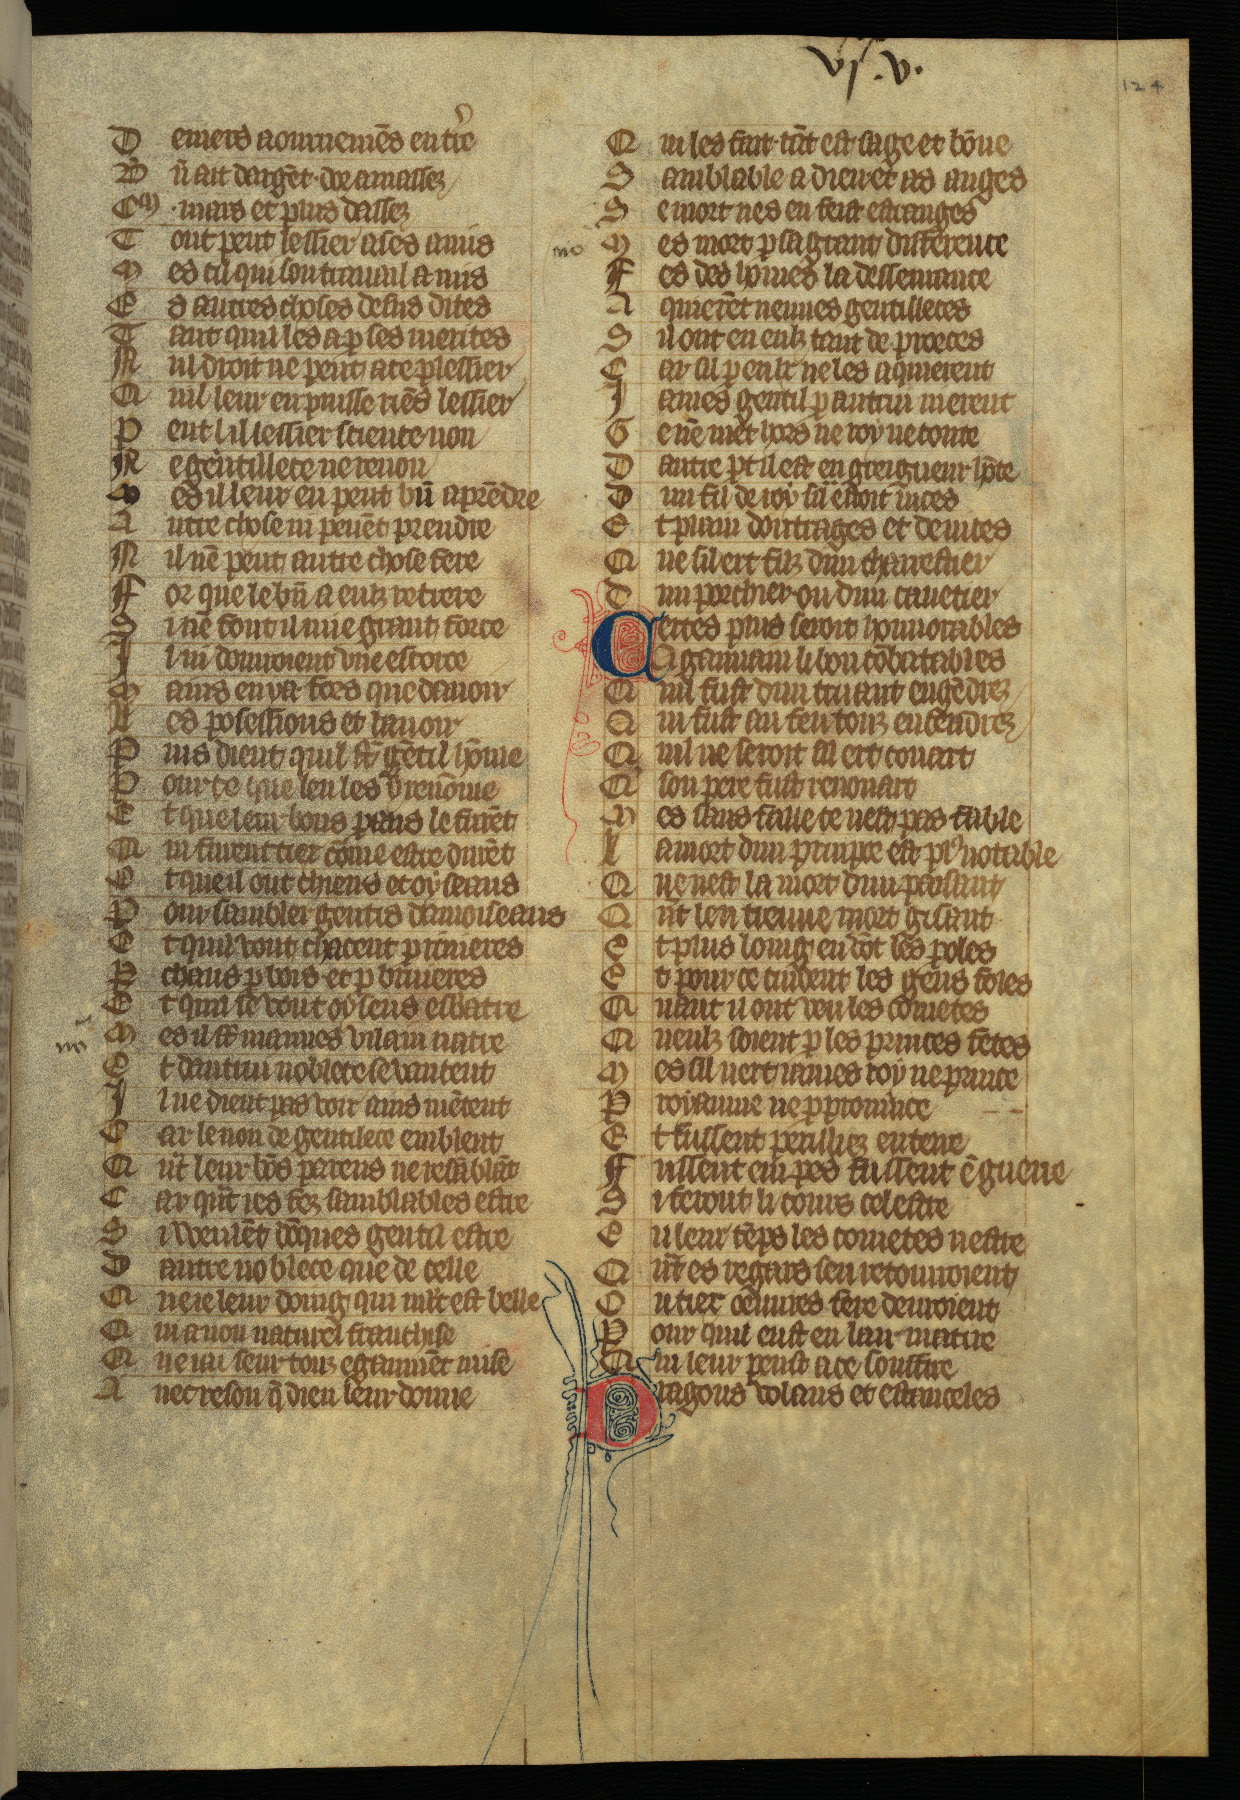 vj.v.
124
D eniers aournemēs en t're
B n̄ ait dargēt dor amassez
C m mars et plus dassez
T out peut lessier a ses amis
M es cil qui son trauail a mis
E s autres choses desus dites
T ant quil les a p ses merites
N ul droit ne peut a ce plessier
Q uil leur en puisse riēs lessier
P eut li il lessier science non
N e gētillece ne renon
M es il leur en peut bn̄ aprēdre
A utre chose ni peuēt prendre
N il nē peut autre chose fere
F or que le bn̄ a eulz retrere
S i nē font il mie grant force
I l ni donroient vne escorce
M ains en ya fors que dauoir
L es posessions et lauoir
P uis dient quil st̄ gētil hōme
P our ce que len les i renōme
E t que leur bons parens le furēt
Q ui furent tier cōme estre durēt
E t que il ont chiens et oyseaus
P our sambler gentis damoiseaus
E t quil vont chacent p riuieres
P chans p bois et p bruieres
E t quil se vont oyseus esbatre
mo
M es il st̄ mauues vilain natre
E t dautrui noblece se vantent
I l ne dient pas voir ains mētent
C ar le non de gentilece emblent
Q nt̄ leur bōs parens ne resāblēt
C ar qnt̄ ies fez samblables estre
S i vuelēt dōques gentil estre
D autre noblece que de celle
Q ue ie leur doing qui mlt̄ est belle
Q ui a non naturel franchise
Q ue iai seur touz egaumēt mise
A uec reson q̄ dieu leur donne
Q ui les fait tāt est sage et bōne
S amblable a dieu et as anges
S e mort nes en feist estranges
mo
M es mort p sa grant difference
F es des hōmes la desseurance
A quierēt neuues gentilleces
S il ont en eulz tant de proeces
C ar sil p eulz ne les aquierent
I ames gentil p autrui nierent
G e nē met hors ne roy ne conte
D autre pt il est en greigneur hōte
D un fil de roy sil estoit nices
E t plain doutrages et de vices
Q ue sil ert filz dun charretier
D un porchier ou dun cauetier
Certes plus seroit hounorables
A gauuain li bon cōbatables
Q uil fust dun couart engēdrez
Q ui fust au feu touz encendrez
Q uil ne seroit sil ert couart
Q son pere fust renouart
M es sans faille ce nest pas fable
L a mort dun prince est plꝰ notable
Q ue nest la mort dun paisant
Q nt̄ len treuue mort gisant
E t plus loing en vōt les poles
E t pour ce cuident les gens foles
Q uant il ont veu les cometes
Q ueulz soient p les princes fetes
M es sil niert iames roy ne prince
P royaume ne p prouince
E t fussent perilliez en terre
F ussent em pes fussent ē guerre
S i feront li cours celestre
E n leur tēps les cometes nestre
Q nt̄ es regars sen retouroient
O u tiex oeuures fere deuroient
P our quil eust en lair matire
Q ui leur peust a ce souffire
Dragons volans et estanceles